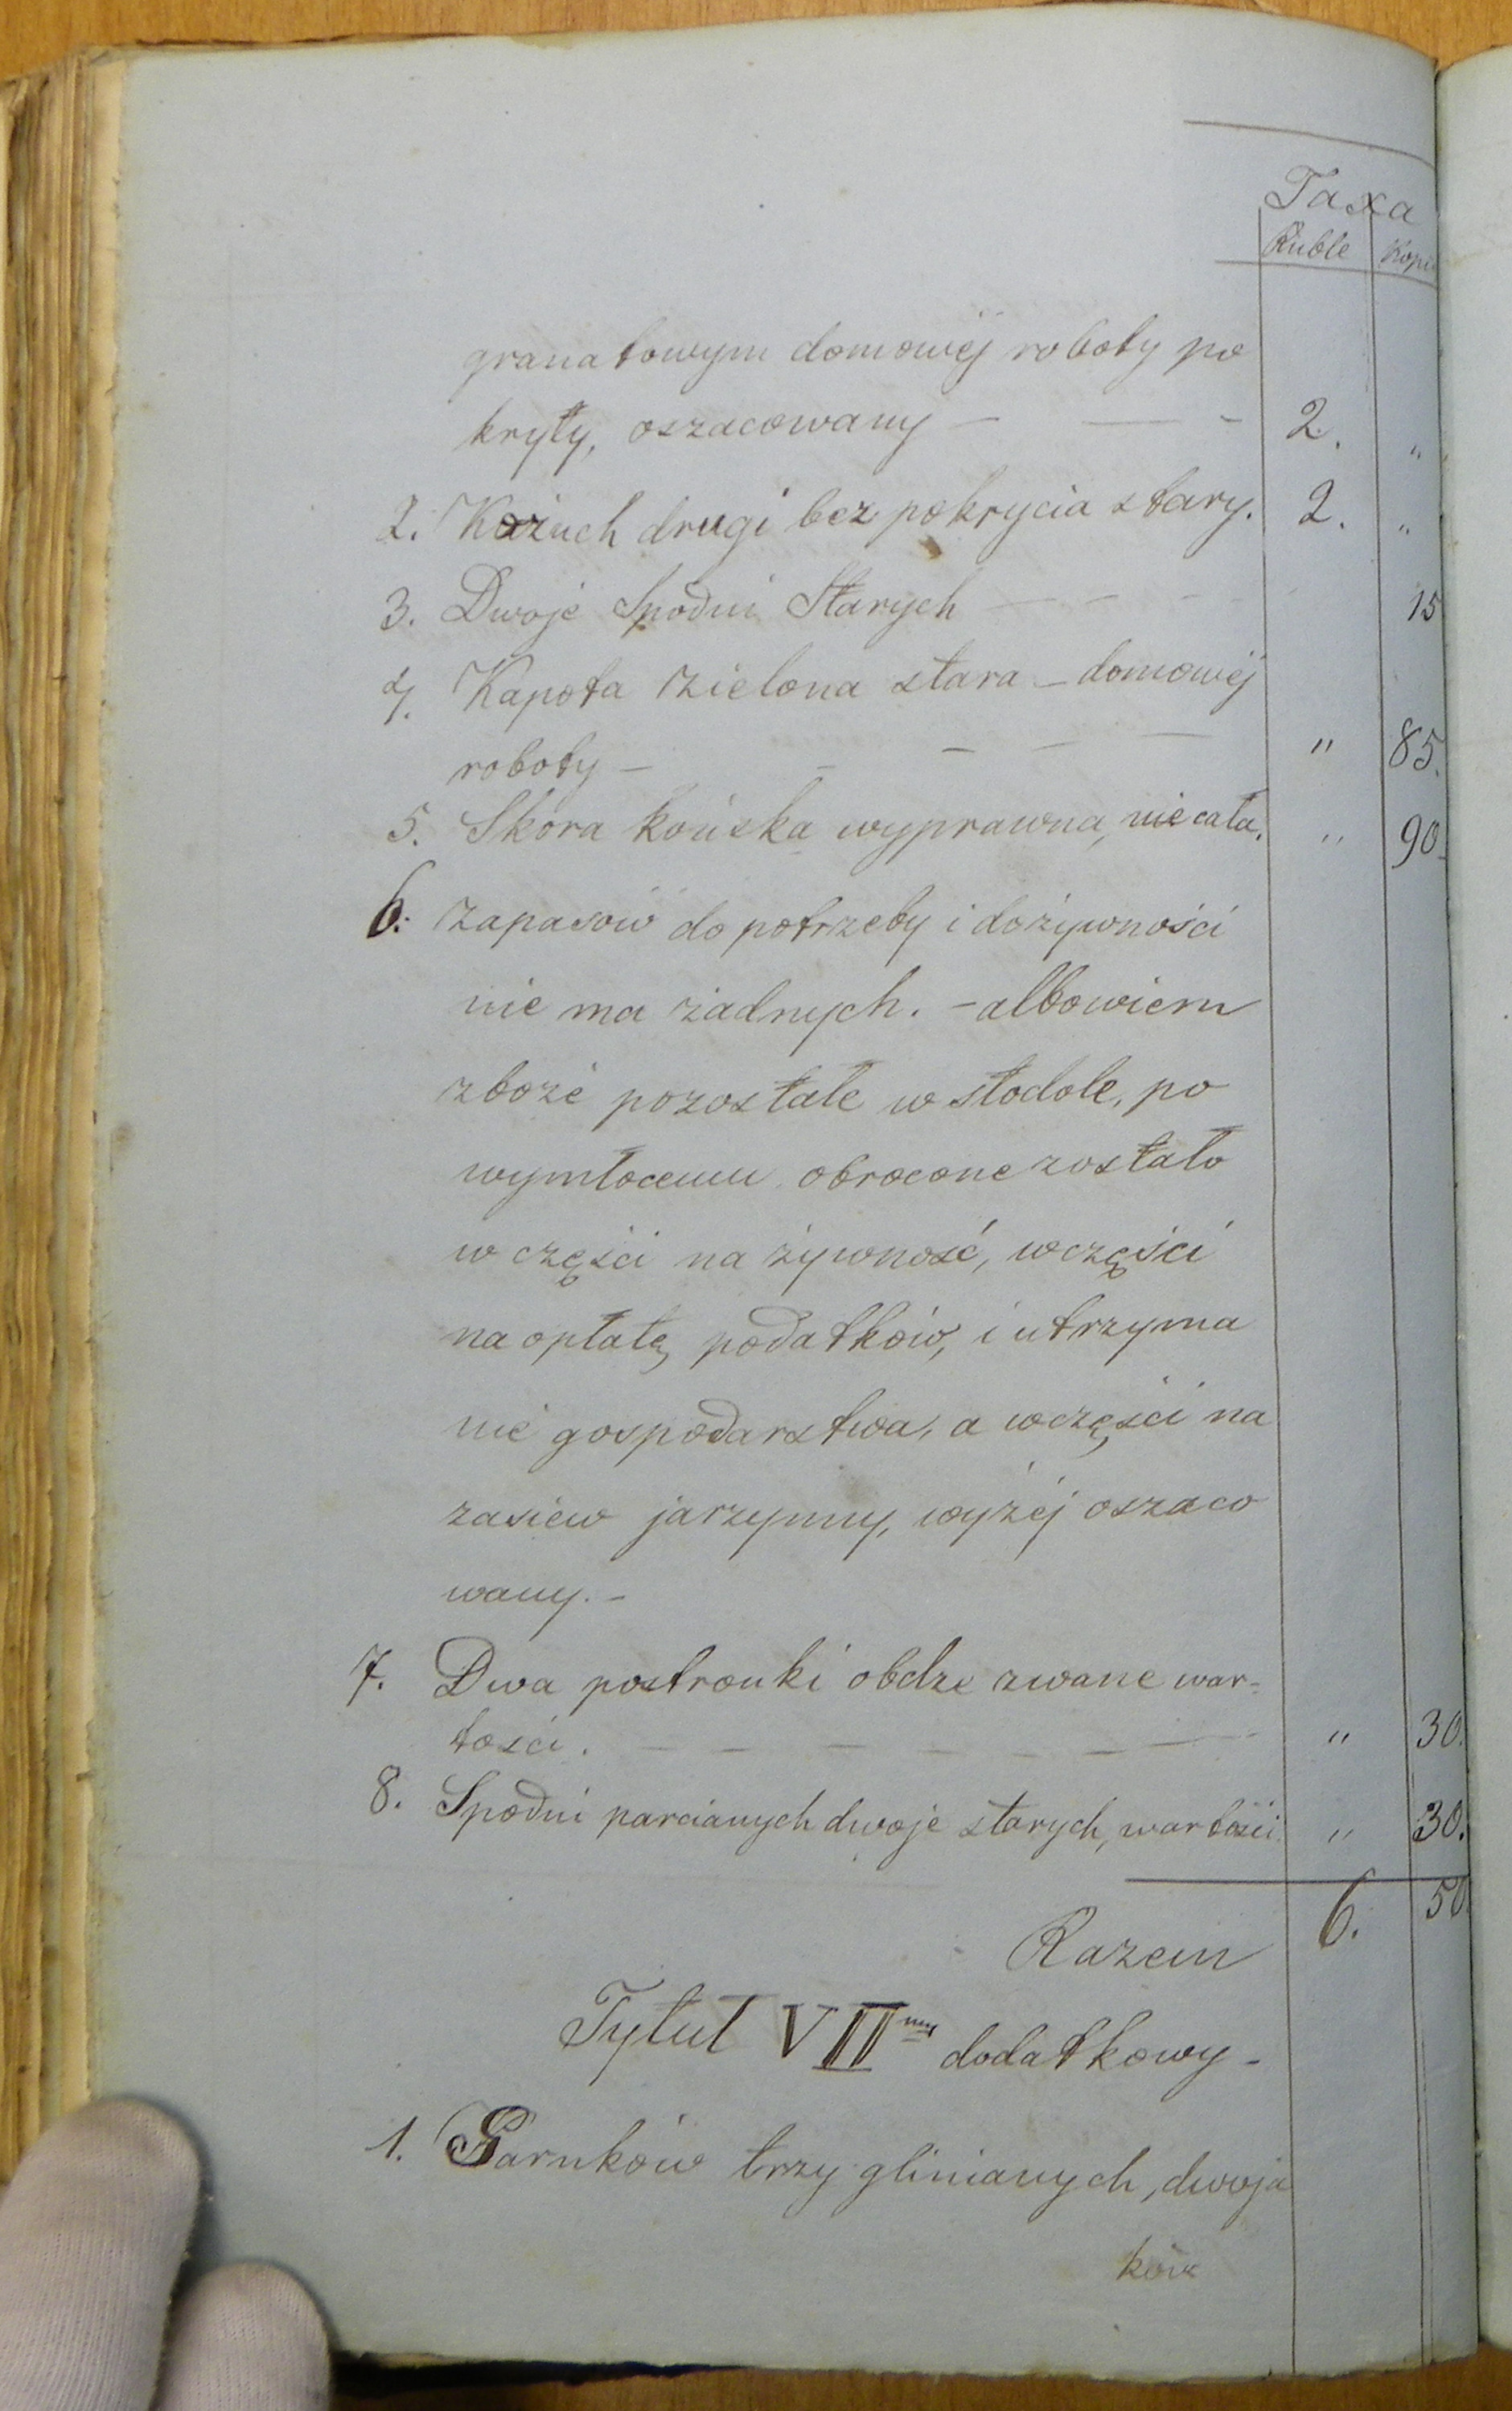 Taxa
Ruble Kopie
granatowym domowéj roboty po
kryty, oszacowany — — - 2. "
2. Kożuch drugi bez pokrycia stary. 2. "
3. Dwoje Spodni Starych - - - 15
4. Kapota zielona stara - domowéj
roboty - - - - - " 85.
5. Skóra końska wyprawna, nie cała. " 90.
6. Zapasów do potrzeby i do żywności
nie ma żadnych. - albowiem
zboże pozostałe w stodole, po
wymłoceniu obrocone zostało
w części na żywność, w części
na opłatę podatków, i utrzyma
nie gospodarstwa, a w części na
zasiew jarzynny, wyżéj oszaco
wany. -
7. Dwa postronki obdze zwane war-
tości. - - - - - - - " 30.
8. Spodni parcianych dwoje starych, wartości " 30.
Razem 6. 50.
Tytuł VIImy dodatkowy -
1. Garnków trzy glinianych, dwoja
ków